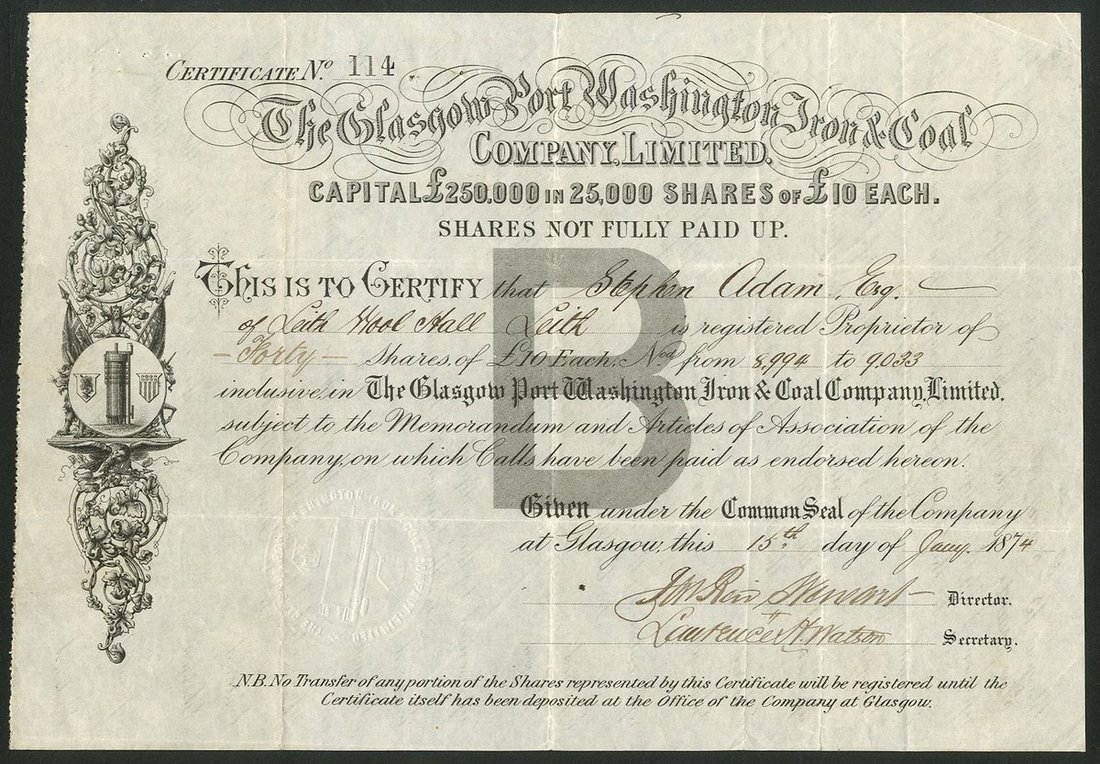 CERTIFICATE No. 114
The Glasgow Port Washington Iron & Coal
COMPANY, LIMITED.
CAPITAL £250.000 IN 25,000 SHARES OF £10 EACH.
SHARES NOT FULLY PAID UP.
B
THIS IS TO CERTIFY that Stephen Adam, Esq.
of Leith Wool Hall Leith is registered Proprietor of
- Forty - Shares, of £10 Each. Nos. from 8,994 to 9,033
inclusive, in The Glasgow Port Washington Iron & Coal Company, Limited.
subject to the Memorandum and Articles of Association of the
Company, on which Calls have been paid as endorsed hereon.
Given under the Common Seal of the Company
at Glasgow, this 15th. day of Jany. 1874
Stewart Director.
Lawrence H. Watson Secretary.
N.B. No Transfer of any portion of the Shares represented by this Certificate will be registered until the
Certificate itself has been deposited at the Office of the Company at Glasgow.